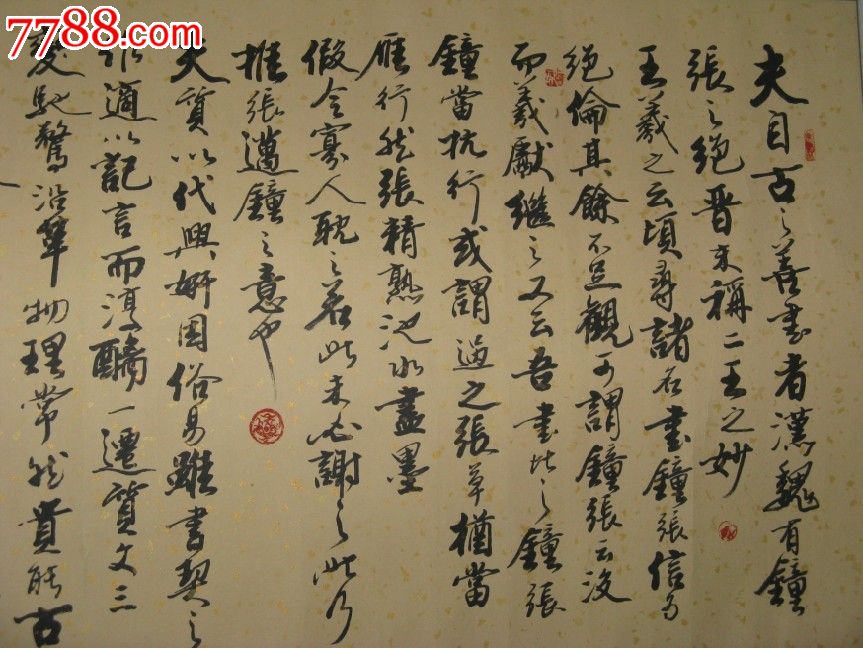 7788.com
中国收藏热线
夫自古之善書者漢魏有鐘
張之絕晉末稱二王之妙
王羲之云頃尋諸名書鐘張信為
絕倫其餘不足觀可謂鐘張云沒
而羲獻繼之又云吾書比之鐘張
鐘當抗行或謂過之張草猶當
雁行然張精熟池水盡墨
假令寡人耽之若此未必謝之此乃
推張邁鐘之意也
夫質以代興妍因俗易雖書契之
作適以記言而淳醨一遷質文三
變馳騖沿革物理常然貴能古